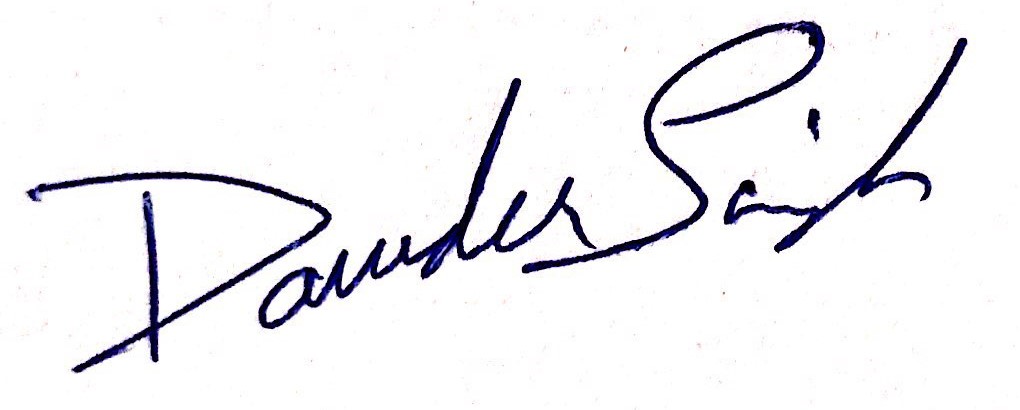 Davinder Singh